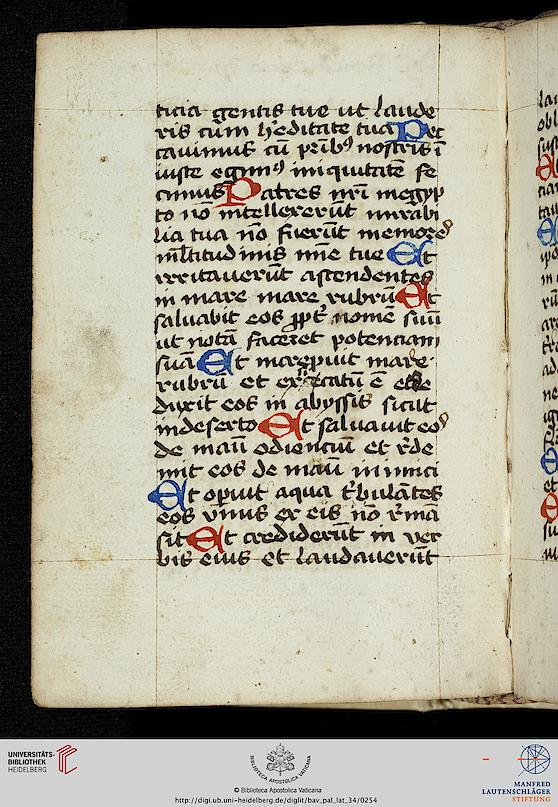 ticia gentis tue ut laude
ris cum h'editate tua Pec
cauimus cū prībꝰ nostris ī
iuste egimꝰ iniquitatē fe
cimus Patres nr̄i in egyp
to nō intellexerūt mirabi
lia tua nō fuerūt memores
ml̄titudinis mīe tue Et
irritauerūt ascendentes
in mare mare rubrū Et
saluabit eos ꝓpt̄ nomē suū
ut notā faceret potenciam
suā Et increpuit mare
rubrū et exsiccatū ē et de
duxit eos in abyssis sicut
in deserto Et saluauit eos
de manū odienciū et r̄de
mit eos de manū inimici
Et opuit aqua t'bulātes
eos vnus ex eis nō r̄mā
sit Et crediderūt in ver
bis eius et laudauerūt
UNIVERSITÄTS-
BIBLIOTHEK
HEIDELBERG
BIBLIOTECA APOSTOLICA VATICANA
© Biblioteca Apostolica Vaticana
http://digi.ub.uni-heidelberg.de/diglit/bav_pal_lat_34/0254
MANFRED
LAUTENSCHLÄGER
STIFTUNG